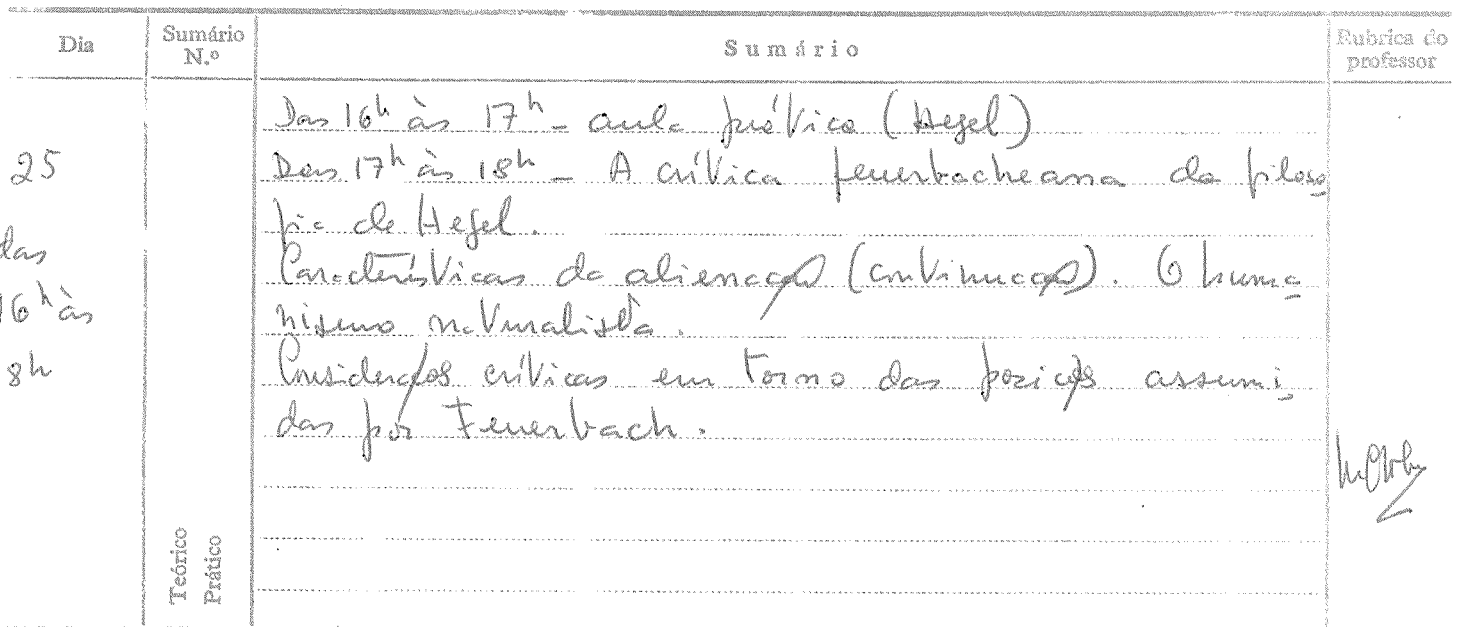 Dia
Sumário N.º
Sumário
Rubrica do professor
25
das
16h às
8h
Das 16h às 17h - aula prática (Hegel)
Das 17h às 18h - A crítica feuerbacheana da filoso
fia de Hegel.
Características da alienação (continuação). O huma
nismo naturalista.
Considerações críticas em torno das posições assumi
das por Feuerbach.
Teórico
Prático